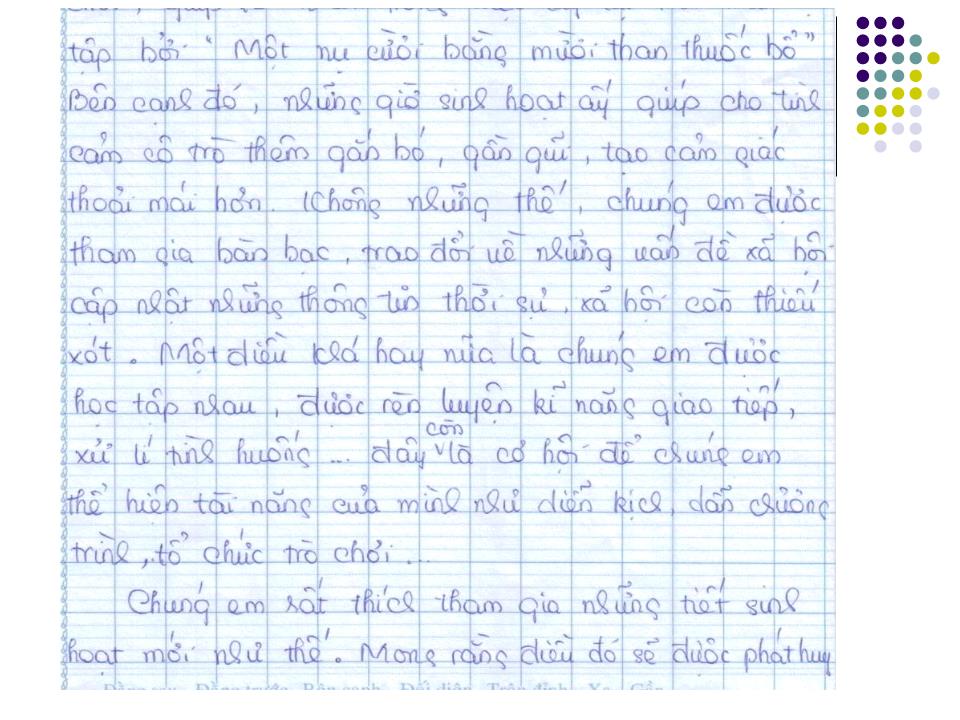 tập bởi "Một nụ cười bằng mười thang thuốc bổ"
Bên cạnh đó, những giờ sinh hoạt ấy giúp cho tình
cảm cô trò thêm gắn bó, gần gũi, tạo cảm giác
thoải mái hơn. Không những thế, chúng em được
tham gia bàn bạc, trao đổi về những vấn đề xã hội
cập nhật những thông tin thời sự, xã hội còn thiếu
xót. Một điều khá hay nữa là chúng em được
học tập nhau, được rèn luyện kĩ năng giao tiếp,
xử lí tình huống ... đây còn là cơ hội để chúng em
thể hiện tài năng của mình như diễn kịch, dẫn chương
trình, tổ chức trò chơi ...
Chúng em rất thích tham gia những tiết sinh
hoạt mới như thế. Mong rằng điều đó sẽ được phát huy